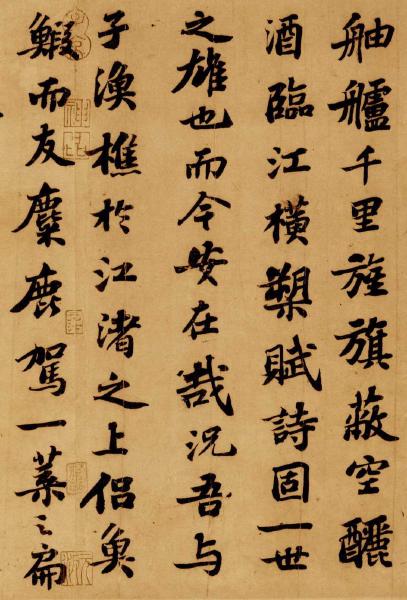 舳艫千里旌旗蔽空釃
酒臨江橫槊賦詩固一世
之雄也而今安在哉況吾與
子漁樵於江渚之上侶魚
鰕而友麋鹿駕一葉之扁